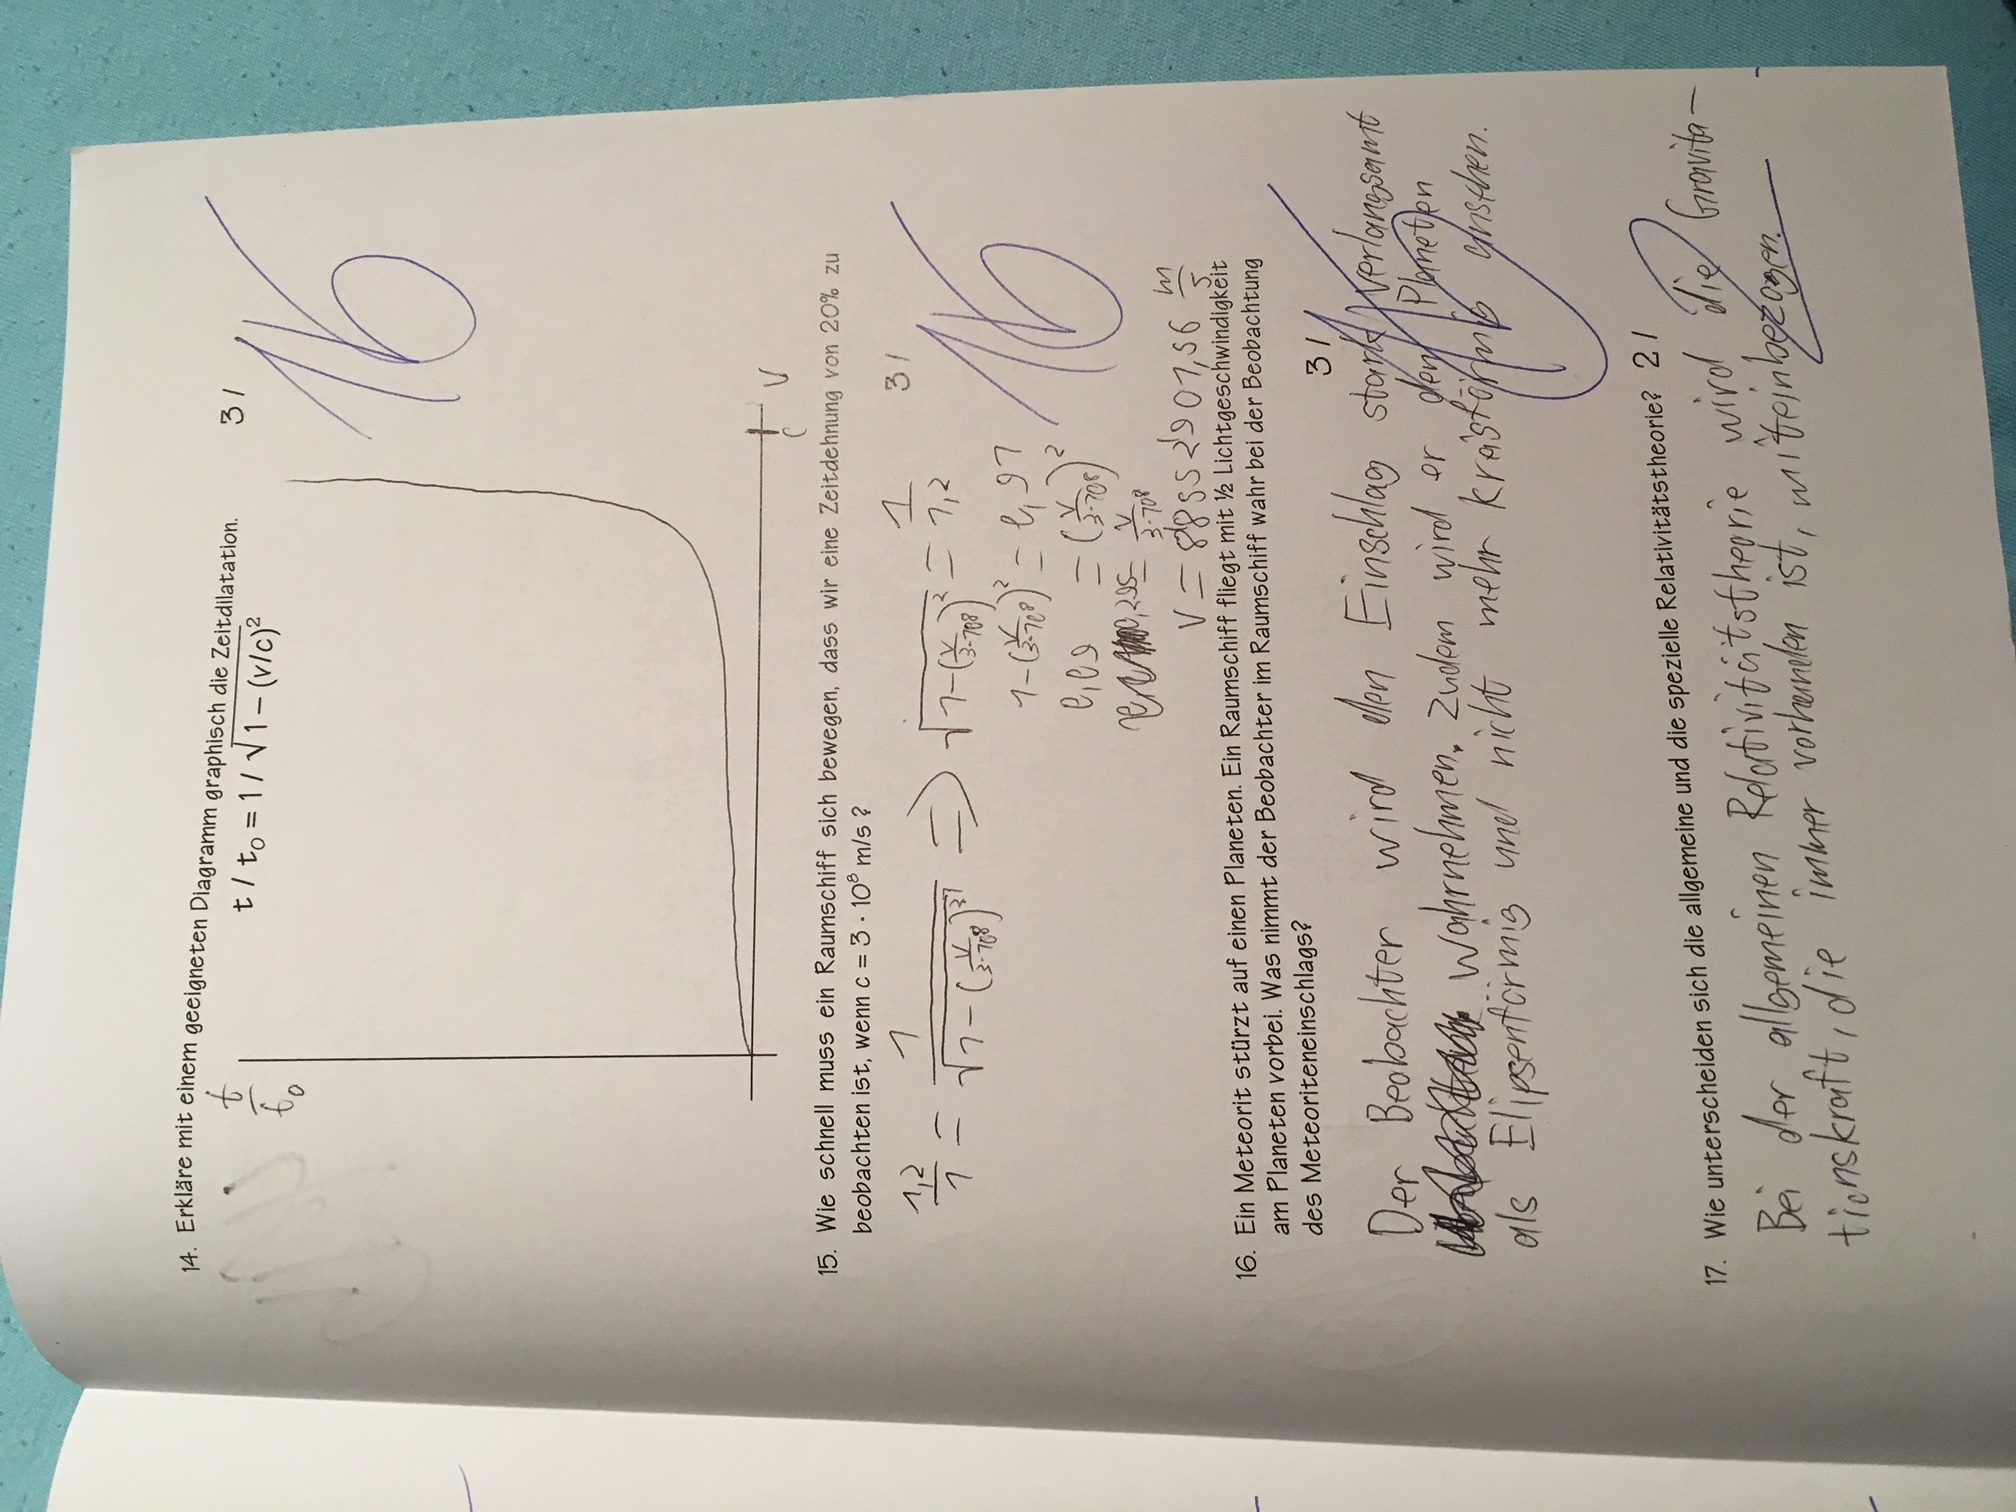 14. Erkläre mit einem geeigneten Diagramm graphisch die Zeitdilatation.
3 /
t / t₀ = 1 / √1 – (v/c)²
t
t₀
16
c
V
15. Wie schnell muss ein Raumschiff sich bewegen, dass wir eine Zeitdehnung von 20% zu
beobachten ist, wenn c = 3 · 10⁸ m/s ?
3 /
1,2/1 = 1/√1-(v/3·10⁸)² => √1-(v/3·10⁸)² = 1/1,2
16
1-(v/3·10⁸)² = 0,91
0,09 = (v/3·10⁸)²
0,295 = v/3·10⁸
V = 88552901,56 m/s
16. Ein Meteorit stürzt auf einen Planeten. Ein Raumschiff fliegt mit ½ Lichtgeschwindigkeit
am Planeten vorbei. Was nimmt der Beobachter im Raumschiff wahr bei der Beobachtung
des Meteoriteneinschlags?
3 /
Der Beobachter wird den Einschlag stark verlangsamt
wahrnehmen. Zudem wird er den Planeten
als Elipsenförmig und nicht mehr kreisförmig ansehen.
17. Wie unterscheiden sich die allgemeine und die spezielle Relativitätstheorie? 2 /
2
Bei der allgemeinen Relativitätstheorie wird die Gravita-
tionskraft, die immer vorhanden ist, miteinbezogen.